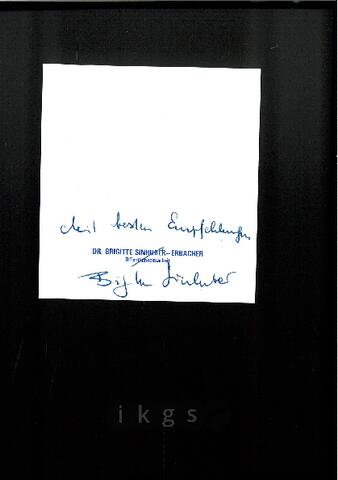 Mit besten Empfehlungen
DR. BRIGITTE SINHUBER-ERBACHER
Brigitte Sinhuber
ikgs